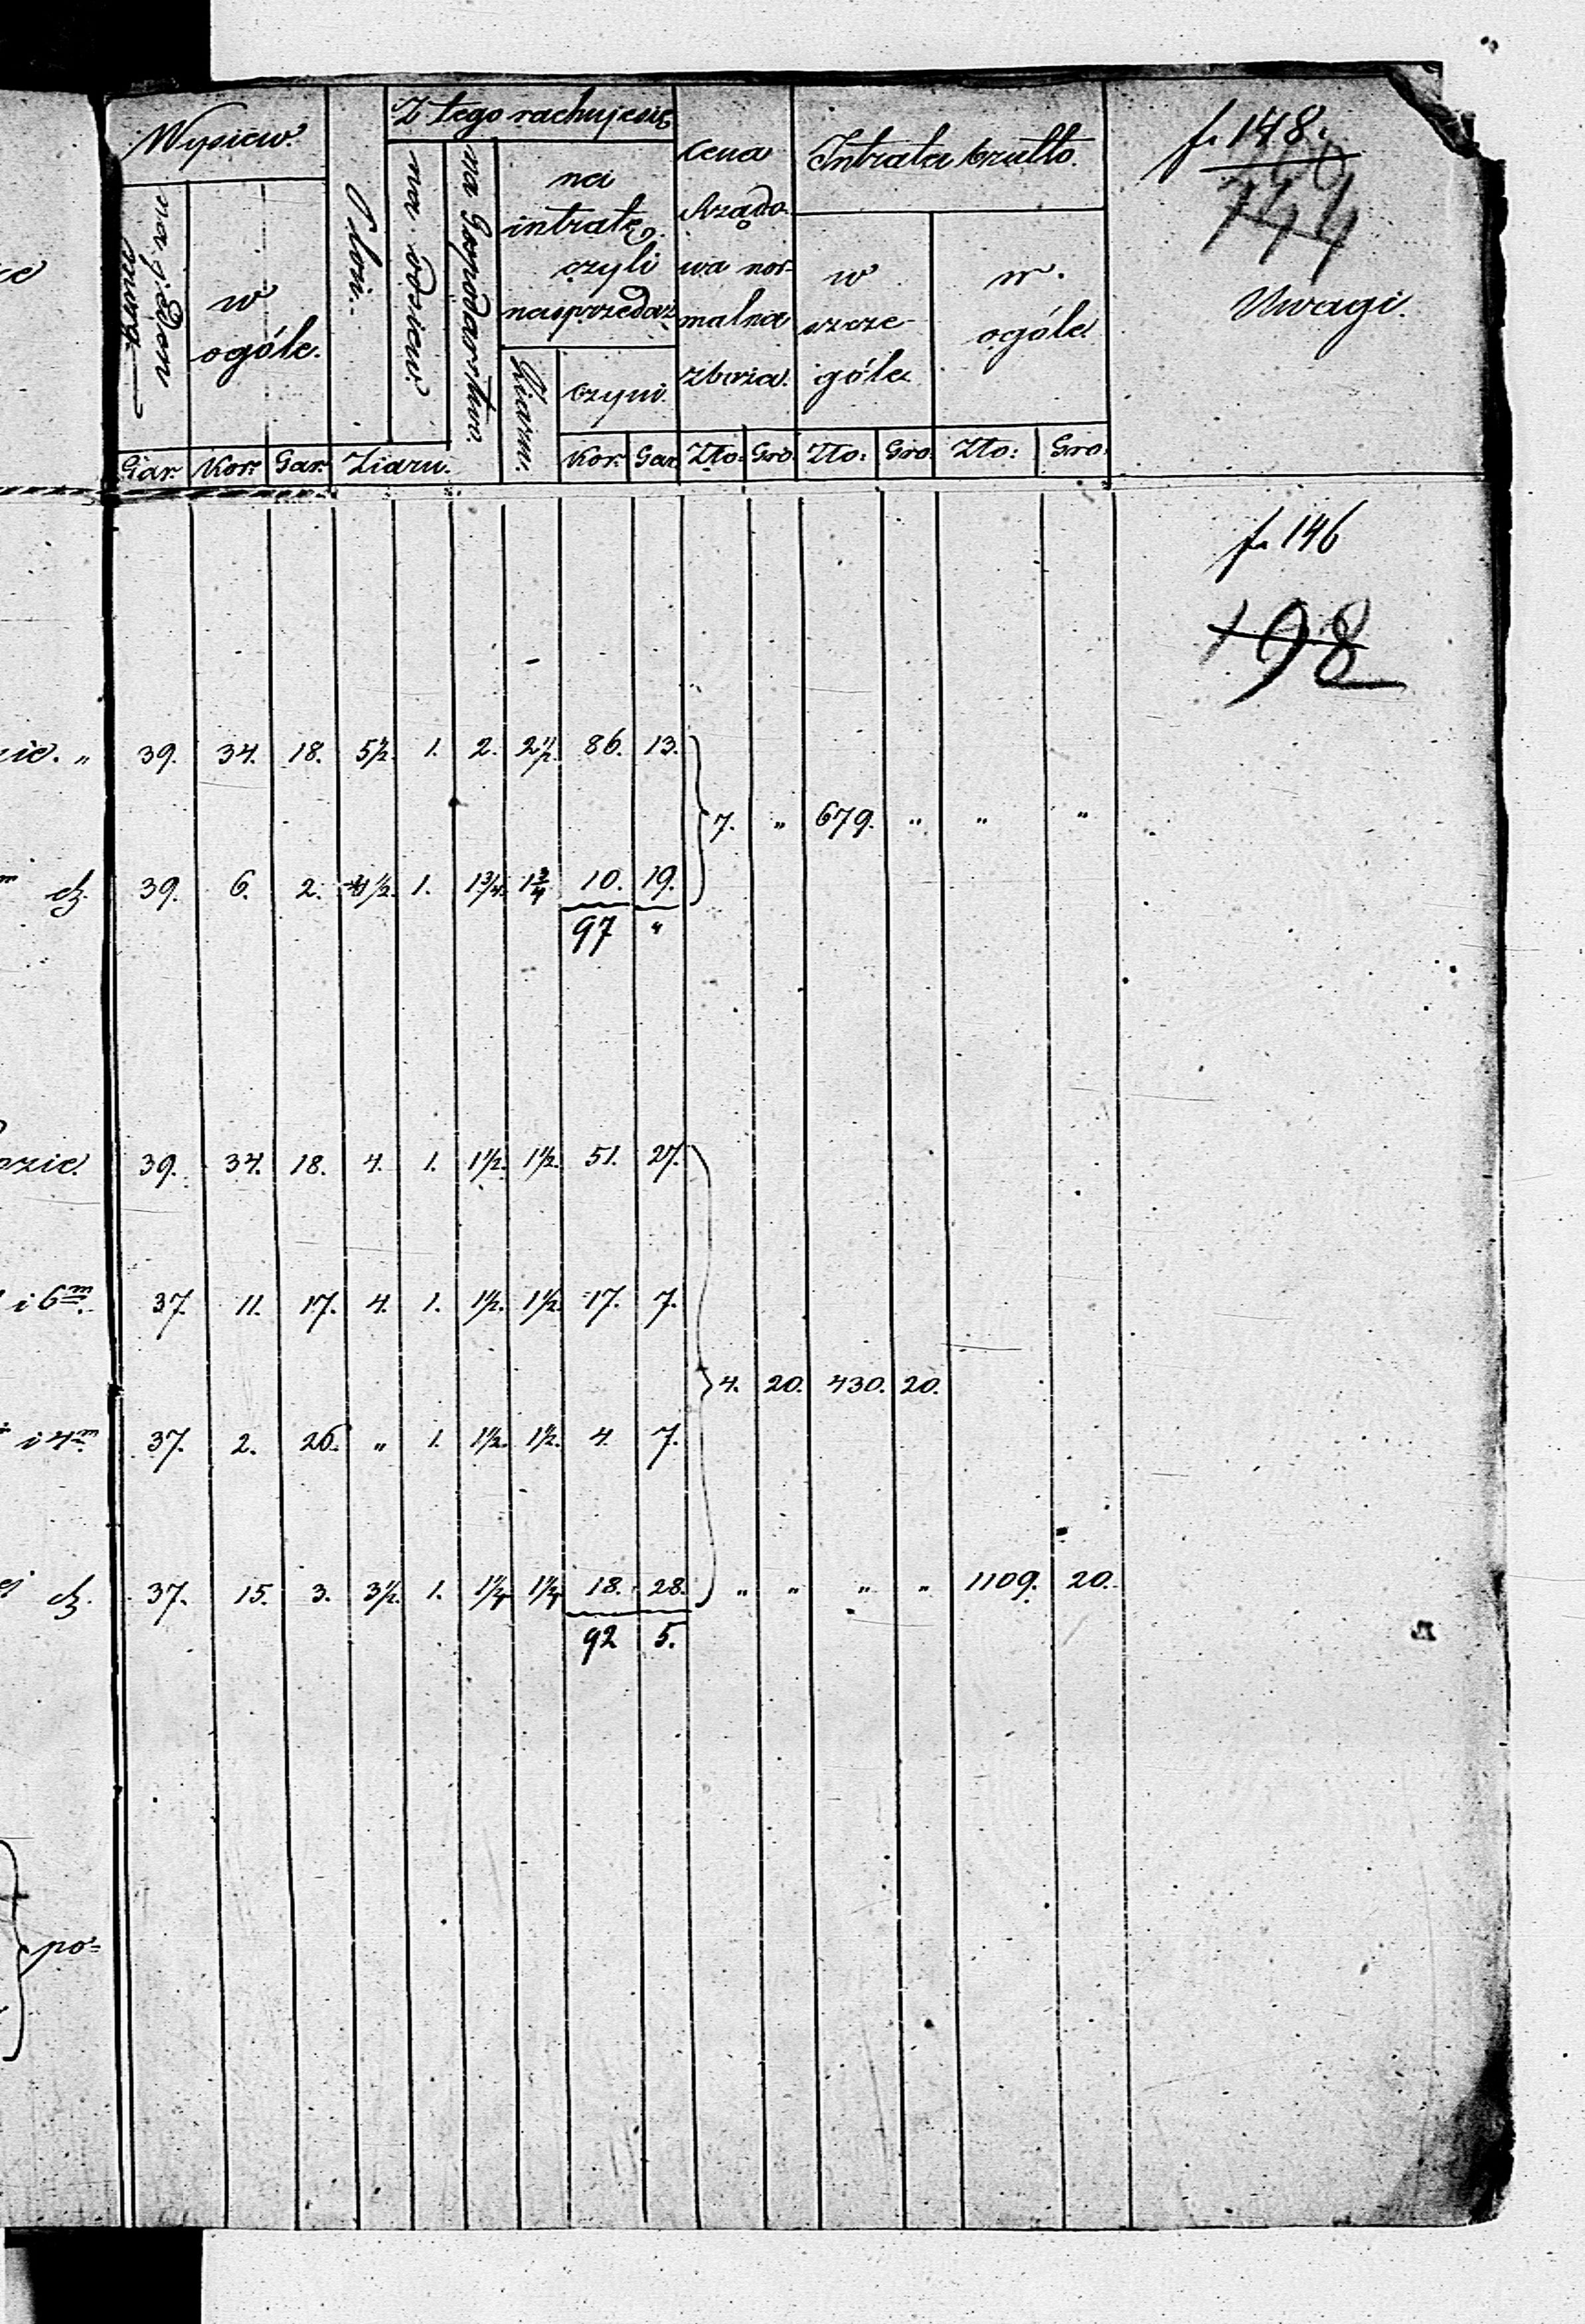 Wysiew.
Z tego rachuje się
Cena Rządowa normalna zboża.
Intrata brutto.
f. 148.
144
Uwagi.
na jeden morg
w ogóle.
Plon.
na wysiew.
na Gospodarstwo.
na intratę czyli na sprzedaż
Ziarn.
czyni.
w szczególe
w ogóle
Gar. Kor: Gar. Ziarn. Kor: Gar. Zło: Gro. Zło: Gro. Zło: Gro.
f. 146
198
zie. „ 39. 34. 18. 5½. 1. 2. 2½. 86. 13.
7. „ 679. „ „ „
39. 6. 2. 4½. 1. 1¾. 1¾ 10. 19.
97 „
39. 34. 18. 4. 1. 1½. 1½. 51. 27.
i 6m. 37. 11. 17. 4. 1. 1½. 1½. 17. 7.
4. 20. 430. 20.
i 4m. 37. 2. 26. „ 1. 1½. 1½. 4. 7.
37. 15. 3. 3½. 1. 1¼ 1¼ 18. 28. „ „ „ „ 1109. 20.
92 5.
po=